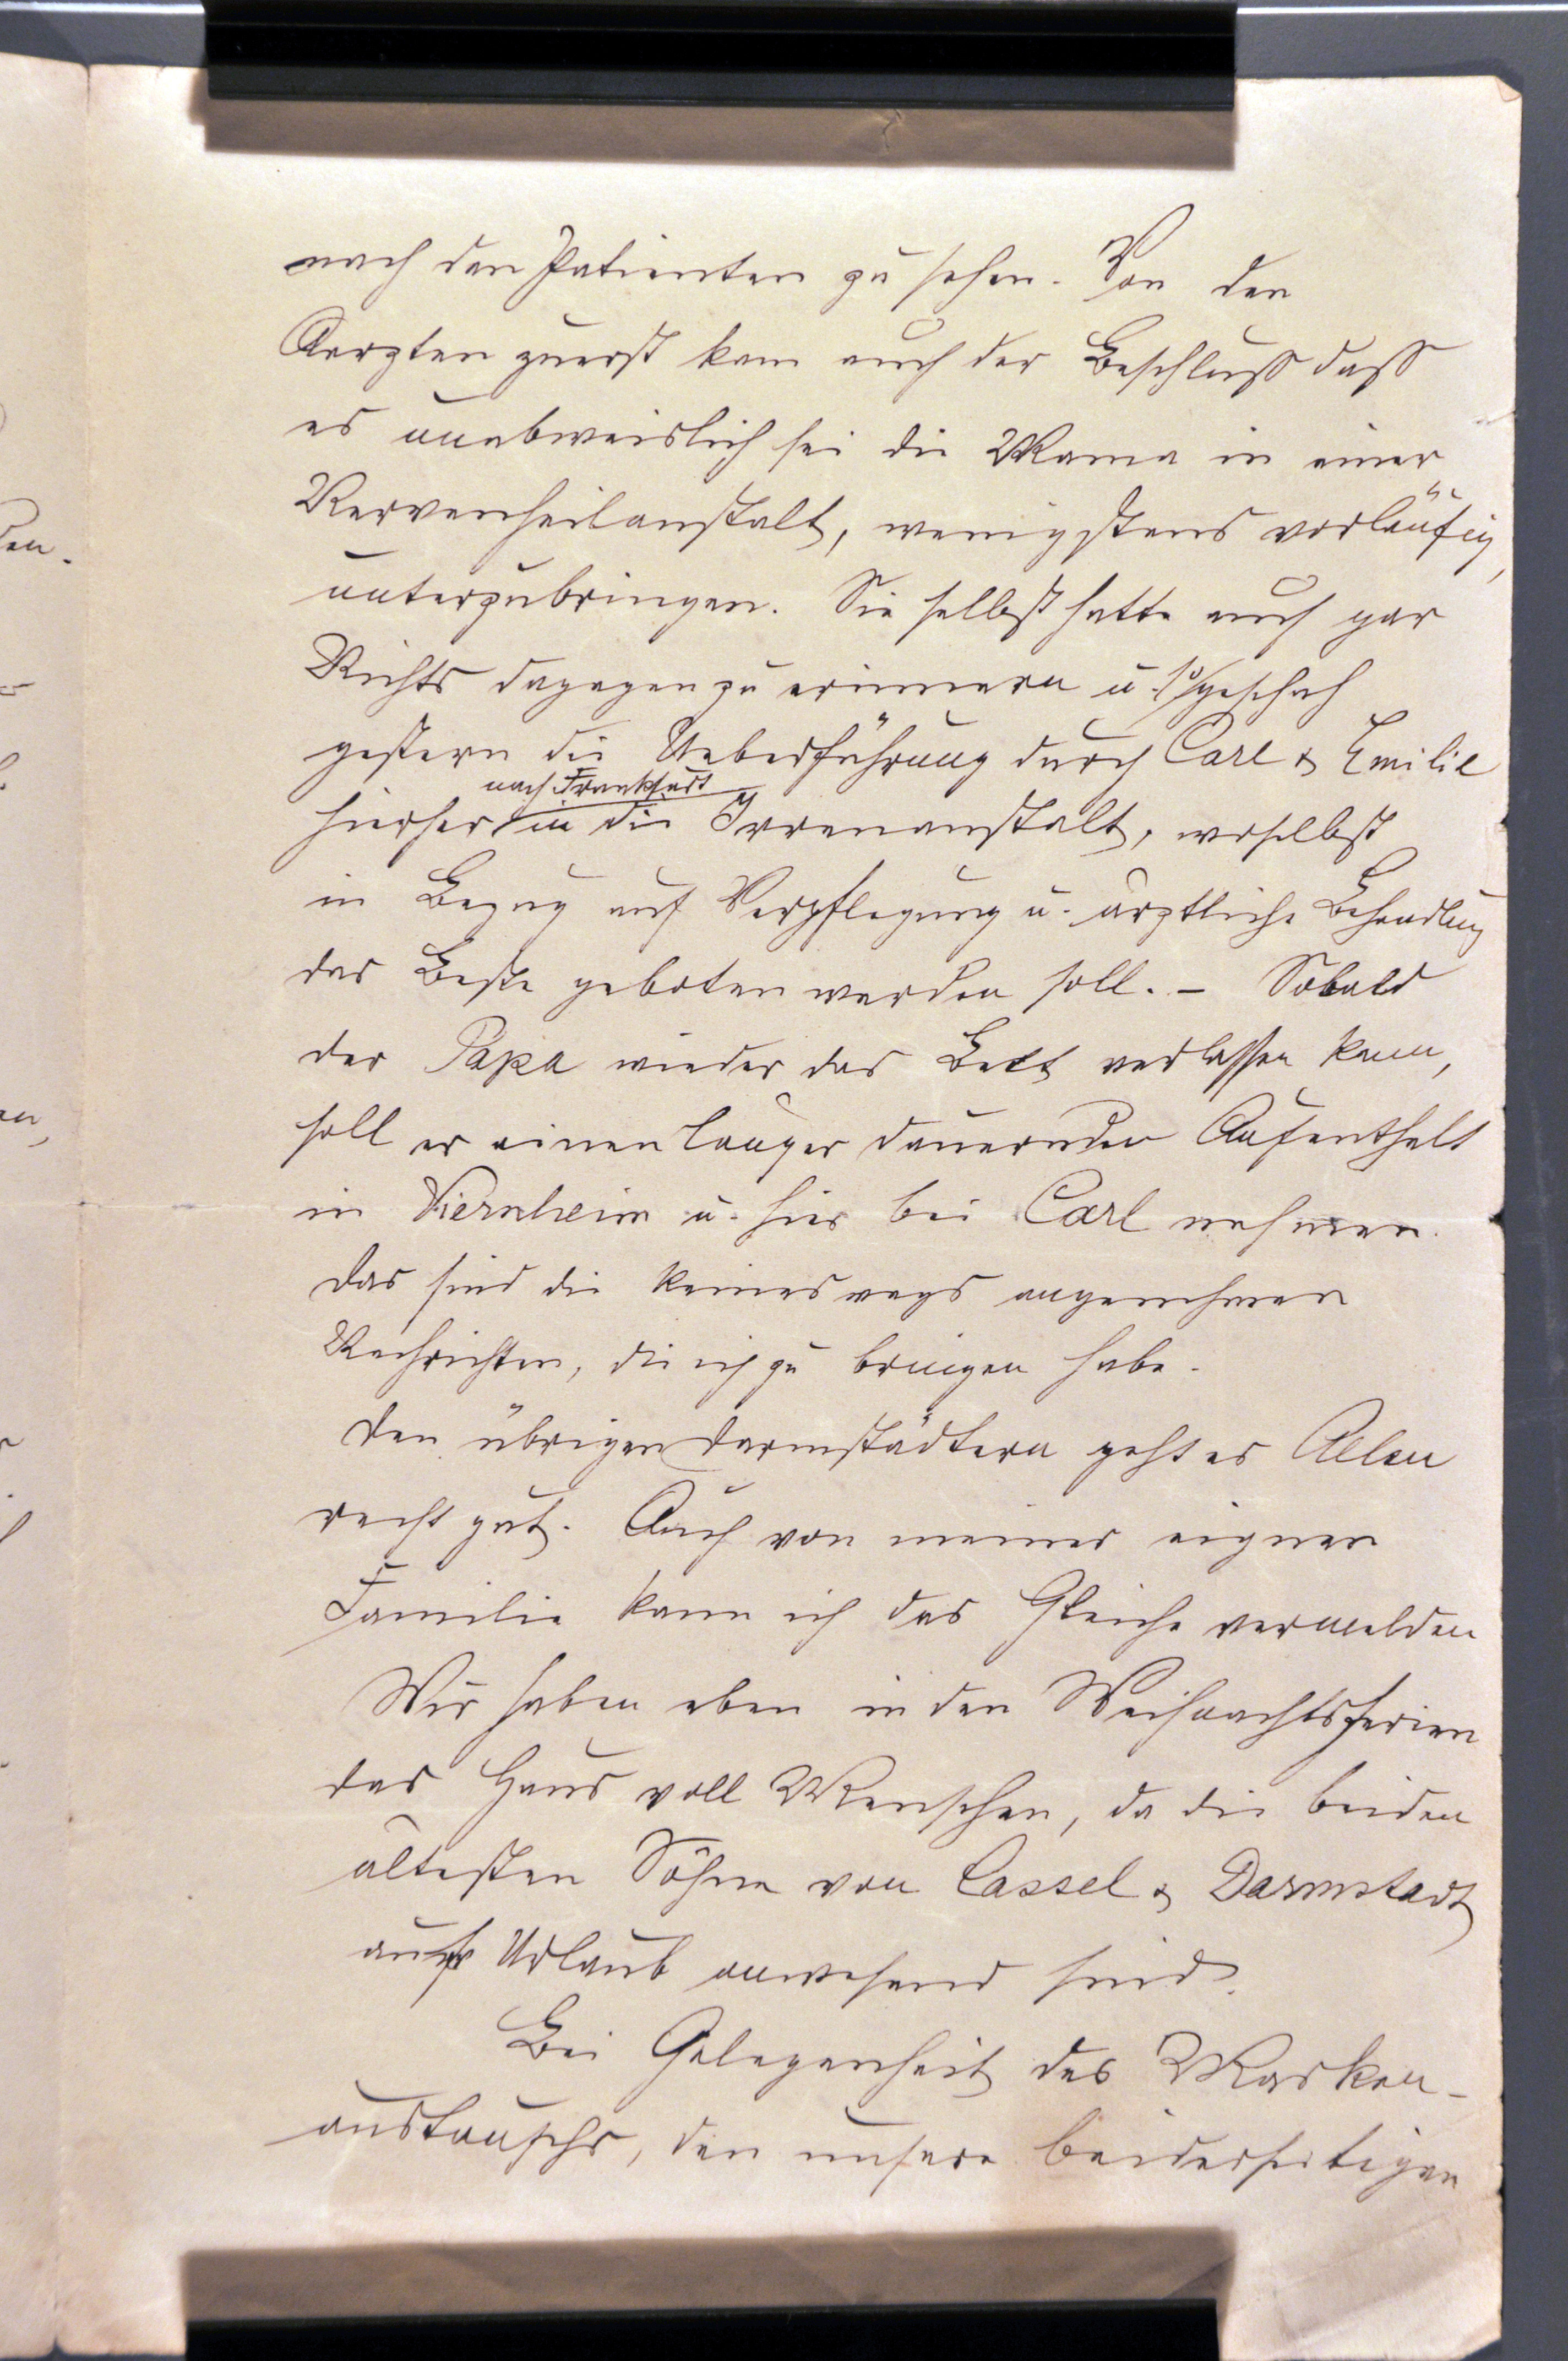 nach den Patienten zu sehen. Von den
Aerzten zuerst kam auch der Beschluss dass
es unabweislich sei die Mama in einer
Nervenheilanstalt, wenigstens vorläufig,
unterzubringen. Sie selbst hatte auch gar
Nichts dagegen zu erinnern u. so geschah
gestern die Ueberführung durch Carl & Emilie
nach Frankfurt
hierher in die Irrenanstalt, woselbst
in Bezug auf Verpflegung u. ärztliche Behandlung
das Beste geboten werden soll. – Sobald
der Papa wieder das Bett verlassen kann,
soll er einen länger dauernden Aufenthalt
in Viernheim u. hier bei Carl nehmen.
Das sind die keineswegs angenehmen
Nachrichten, die ich zu bringen habe.
Den übrigen Darmstädtern geht es Allen
recht gut. Auch von meiner eignen
Familie kann ich das Gleiche vermelden
Wir haben eben in den Weihnachtsferien
das Haus voll Menschen, da die beiden
ältesten Söhne von Cassel & Darmstadt
auf Urlaub anwesend sind.
Bei Gelegenheit des Marken-
austauschs, den unsere beiderseitigen